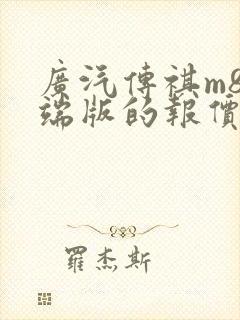 廣汽傳祺m8
端版的報價
羅杰斯